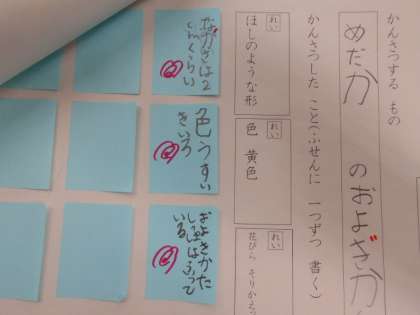 かんさつする もの
めだか のおよぎか
かんさつした こと(ふせんに 一つずつ 書く)
れい
ほしのような形
れい
色 黄色
れい
花びら そりかえっ
ながさは2
色うすい
きいろ
およぎかた
いる